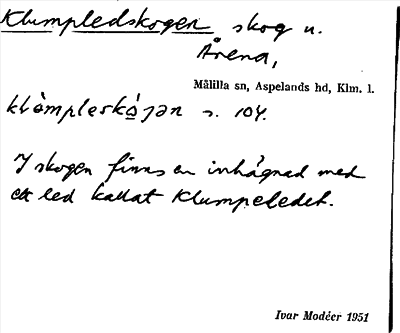 Klumpledskogen skog u.
Årena,
Målilla sn, Aspelands hd, Klm. l.
klòmpleskå̀gən s. 104.
I skogen finns en inhägnad med
ett led kallat Klumpeledet.
Ivar Modéer 1951